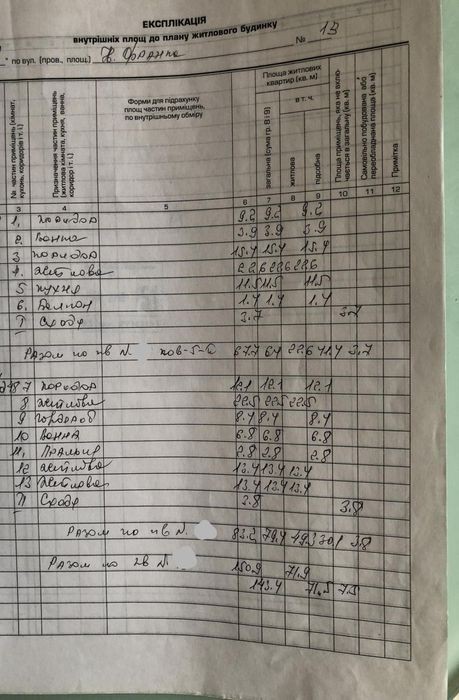 ЕКСПЛІКАЦІЯ
внутрішніх площ до плану житлового будинку
" по вул. (пров., площ.) № 13
№ частин приміщень (кімнат, кухонь, коридорів і т. і.)
Призначення частин приміщень (житлова кімната, кухня, ванна, коридор і т. і.)
Форми для підрахунку площ частин приміщень, по внутрішньому обміру
Площа житлових квартир (кв. м)
загальна (сума гр. 8 і 9)
в т. ч.
житлова
підсобна
Площа приміщень, яка не включається в загальну (кв. м)
Самовільно побудована або переобладнана площа (кв. м)
Примітка
3 4 5 6 7 8 9 10 11 12
1. коридор 9.2 9.2 9.2
2. Ванна 3.9 3.9 3.9
3 коридор 15.4 15.4 15.4
4. житлова 22.6 22.6 22.6
5 кухня 11.5 11.5 11.5
6. Балкон 1.4 1.4 1.4
I Сходи 3.7 3.7
Разом по кв N. пов-5-2 67.7 64 22.6 41.4 3.7
7 коридор 12.1 12.1 12.1
8 житлова 22.5 22.5 22.5
9 гардероб 8.4 8.4 8.4
10 Ванна 6.8 6.8 6.8
11. Пральня 2.8 2.8 2.8
12 житлова 13.4 13.4 13.4
13 житлова 13.4 13.4 13.4
II Сходи 3.8 3.8
Разом по кв N. 83.2 79.4 49.3 30.1 3.8
Разом по 2кв N. 150.9 71.9
143.4 71.5 7.5